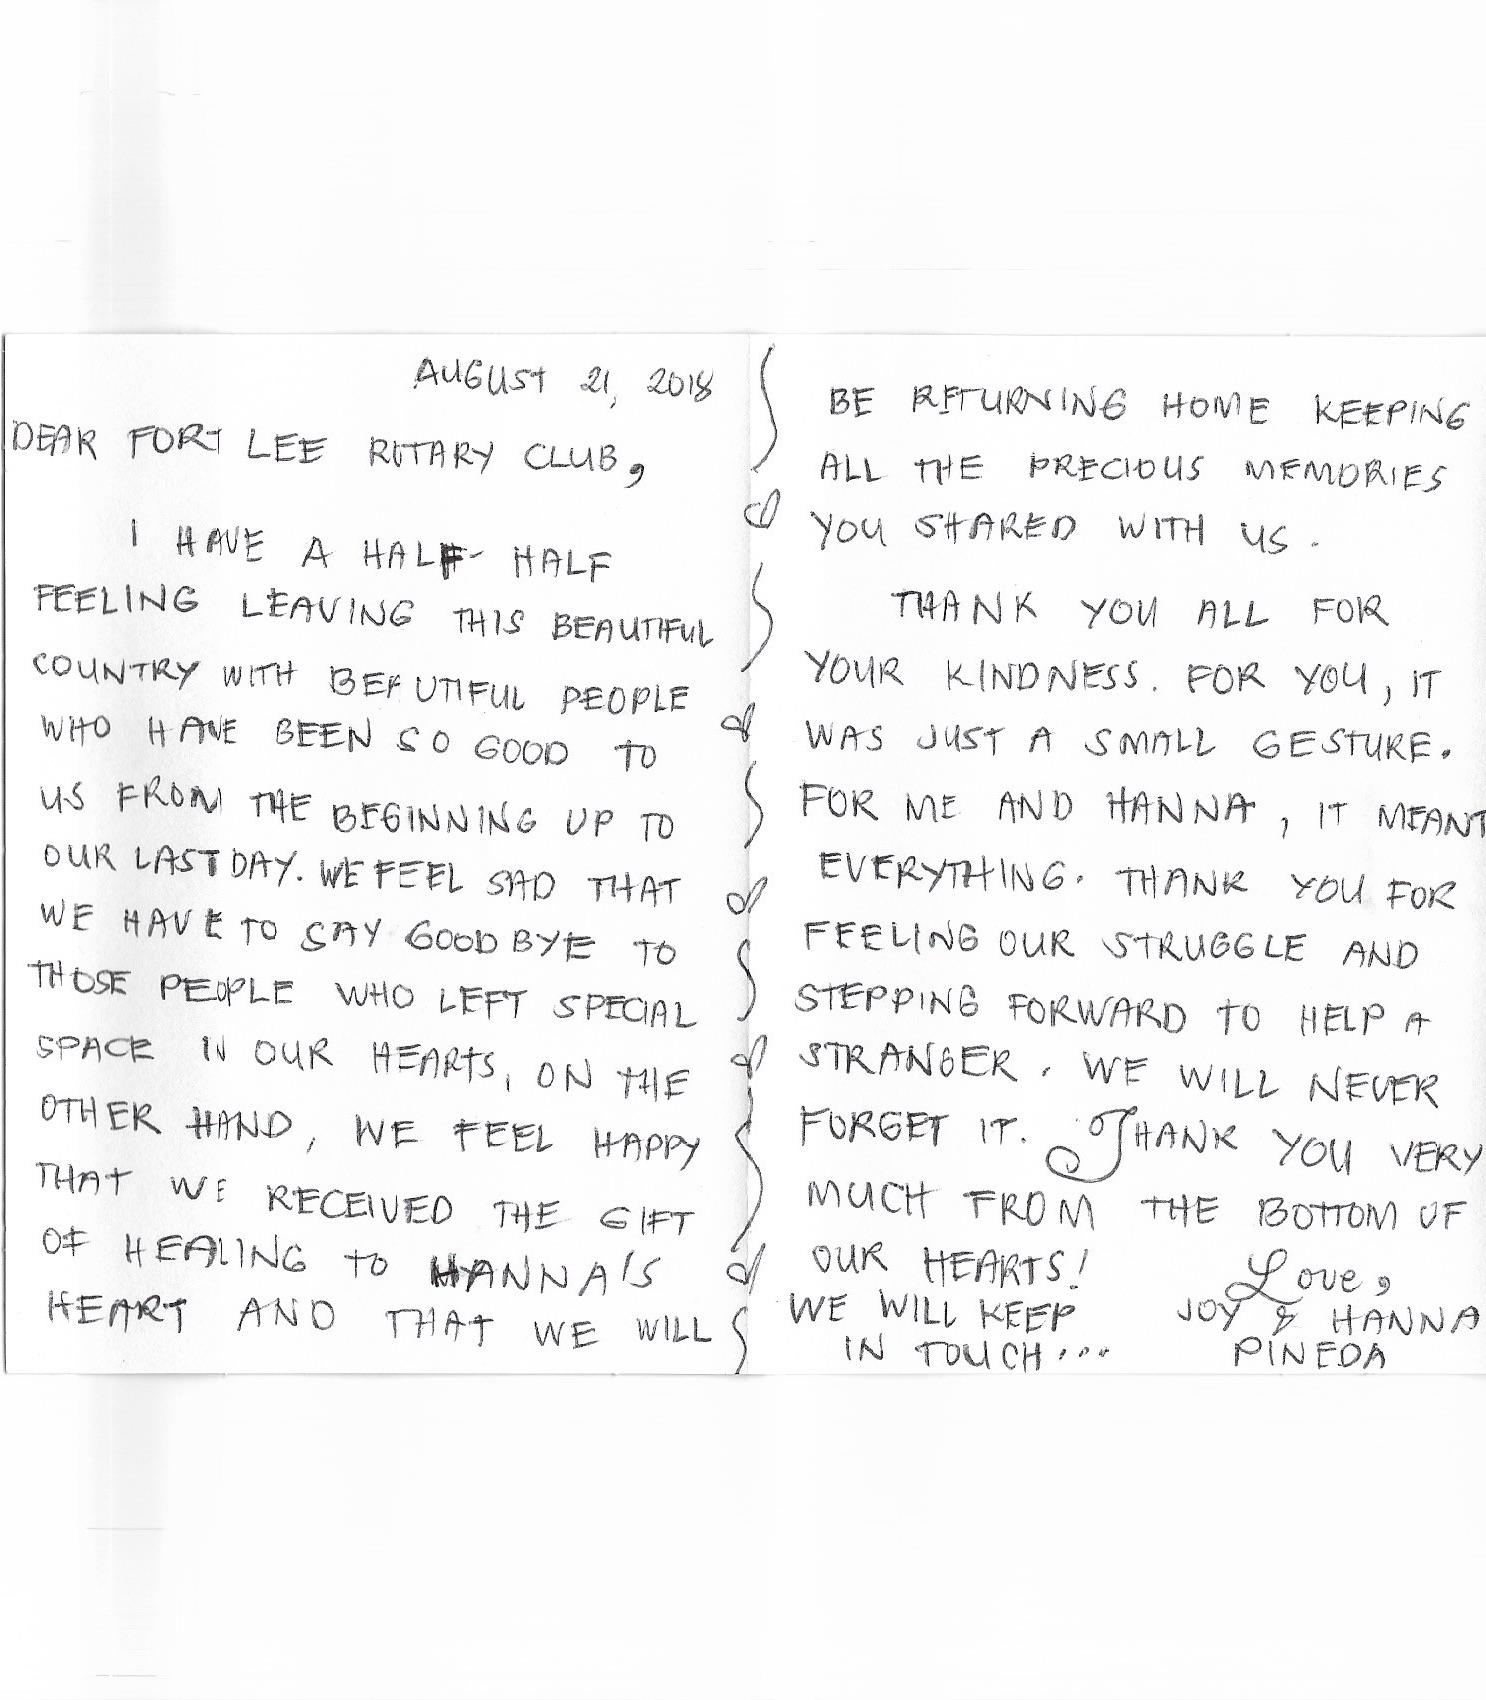 AUGUST 21, 2018
DEAR FORT LEE ROTARY CLUB,
I HAVE A HALF-HALF
FEELING LEAVING THIS BEAUTIFUL
COUNTRY WITH BEAUTIFUL PEOPLE
WHO HAVE BEEN SO GOOD TO
US FROM THE BEGINNING UP TO
OUR LAST DAY. WE FEEL SAD THAT
WE HAVE TO SAY GOODBYE TO
THOSE PEOPLE WHO LEFT SPECIAL
SPACE IN OUR HEARTS, ON THE
OTHER HAND, WE FEEL HAPPY
THAT WE RECEIVED THE GIFT
OF HEALING TO HANNA'S
HEART AND THAT WE WILL
BE RETURNING HOME KEEPING
ALL THE PRECIOUS MEMORIES
YOU SHARED WITH US.
THANK YOU ALL FOR
YOUR KINDNESS. FOR YOU, IT
WAS JUST A SMALL GESTURE.
FOR ME AND HANNA, IT MEANT
EVERYTHING. THANK YOU FOR
FEELING OUR STRUGGLE AND
STEPPING FORWARD TO HELP A
STRANGER. WE WILL NEVER
FORGET IT. THANK YOU VERY
MUCH FROM THE BOTTOM OF
OUR HEARTS!
WE WILL KEEP
IN TOUCH...
Love,
JOY & HANNA
PINEDA